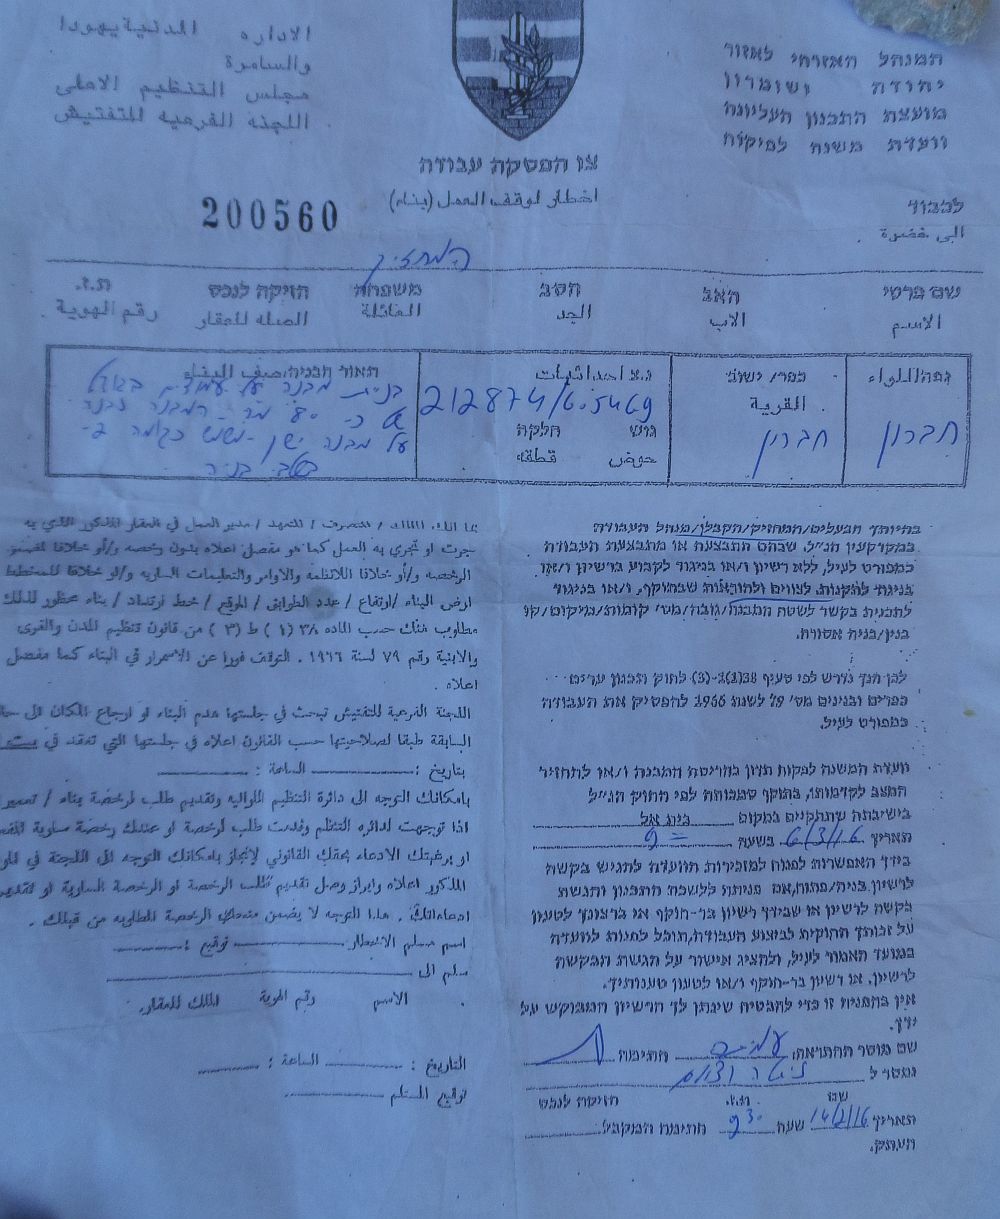 המנהל האזרחי לאזור
יהודה ושומרון
מועצת התכנון העליונה
וועדת משנה לפיקוח
الاداره المدنية يهودا
والسامرة
مجلس التنظيم الاعلى
اللجنه الفرعيه للتفتيش
צו הפסקת עבודה
اخطار لوقف العمل (بناء)
200560
לכבוד
الى حضرة
המחזיק
שם פרטי האב הסב משפחה חזיקה לנכס ת.ז.
الاسم الاب الجد العائلة الصله للعقار رقم الهوية
נפה/اللواء
חברון
כפר/ ישוב
القرية
חברון
נ.צ احداثيات
212874/605469
גוש חלקה
حوض قطعه
תאור הבניה/وصف البناء
בניית מבנה על עמודים בגודל
של כ- 80 מר - המבנה נבנה
על מבנה ישן
בשלב בניה
בהיותך הבעלים/המחזיק/הקבלן/מנהל העבודה
במקרקעין הנ"ל, שבהם התבצעה או מתבצעת העבודה
כמפורט לעיל, ללא רשיון ו/או בניגוד לקבוע ברשיון ו/או
בניגוד לתקנות, לצווים ולהוראות שבתוקף, ו/או בניגוד
לתכנית בקשר לשטח המבנה/גובה/מס' קומות/מיקום/קו
בנין/בניה אסורה.
לכן הנך נדרש לפי סעיף 38(1)-(3) לחוק תכנון ערים
כפרים ובנינים מס' 79 לשנת 1966 להפסיק את העבודה
כמפורט לעיל.
וועדת המשנה לפקוח תדון בהריסת המבנה ו/או להחזיר
המצב לקדמותו, בתוקף סמכותה לפי החוק הנ"ל
בישיבתה שתתקיים במקום בית אל
תאריך 6/3/16 בשעה 9
בידך האפשרות לפנות למזכירות הוועדה להגיש בקשה
לרשיון בניה/פתוח, אם פנית ללשכת התכנון והגשת
בקשה לרשיון או שבידך רשיון בר-תוקף או ברצונך לטעון
על זכותך החוקית לביצוע העבודה, תוכל לפנות לוועדה
במועד האמור לעיל, ולהציג אישור על הגשת הבקשה
לרשיון, או רשיון בר-תוקף ו/או לטעון טענותיך.
אין בהפניה זו כדי להבטיח שינתן לך הרשיון המבוקש על
ידך.
שם מוסר ההתראה: חתימה
נמסר ל
שם ת.ז. חזיקה לנכס
תאריך 14/2/16 שעה 9 30 חתימת המקבל
העתק.
سيرت او تجري به العمل كما هو مفصل اعلاه بدون رخصه و/أو خلافا
الرخصه و/أو خلافا للانظمة والاوامر والتعليمات الساريه و/او خلافا للمخطط
ارض البناء/ارتفاع/ عدد الطوابق / الموقع / خط ارتداد / بناء محظور لذلك
مطلوب منك حسب الماده ٣٨ (١) ط (٣) من قانون تنظيم المدن والقرى
والابنية رقم ٧٩ لسنة ١٩٦٦ . التوقف فورا عن الاستمرار في البناء كما مفصل
اعلاه .
اللجنة الفرعية للتفتيش تبحث في جلستها هدم البناء او ارجاع المكان الى
السابقة طبقا لصلاحيتها حسب القانون اعلاه في جلستها التي تعقد في
بتاريخ : الساعة :
بامكانك التوجه الى دائرة التنظيم اللوائيه وتقديم طلب لرخصة بناء /
اذا توجهت لدائره التنظيم وقدمت طلب لرخصة او عندك رخصة سارية
او برغبتك الادعاء بحقك القانوني لإنجاز بامكانك التوجه الى اللجنة في
المذكور اعلاه وابراز وصل تقديم طلب الرخصة او الرخصة السارية او
ادعاءاتك . هذا التوجه لا يضمن منحك الرخصة المطلوبه من قبلك .
اسم مسلم الاخطار توقيع :
سلم الى
الاسم رقم الهوية المالك للعقار.
التاريخ : الساعة :
توقيع المستلم